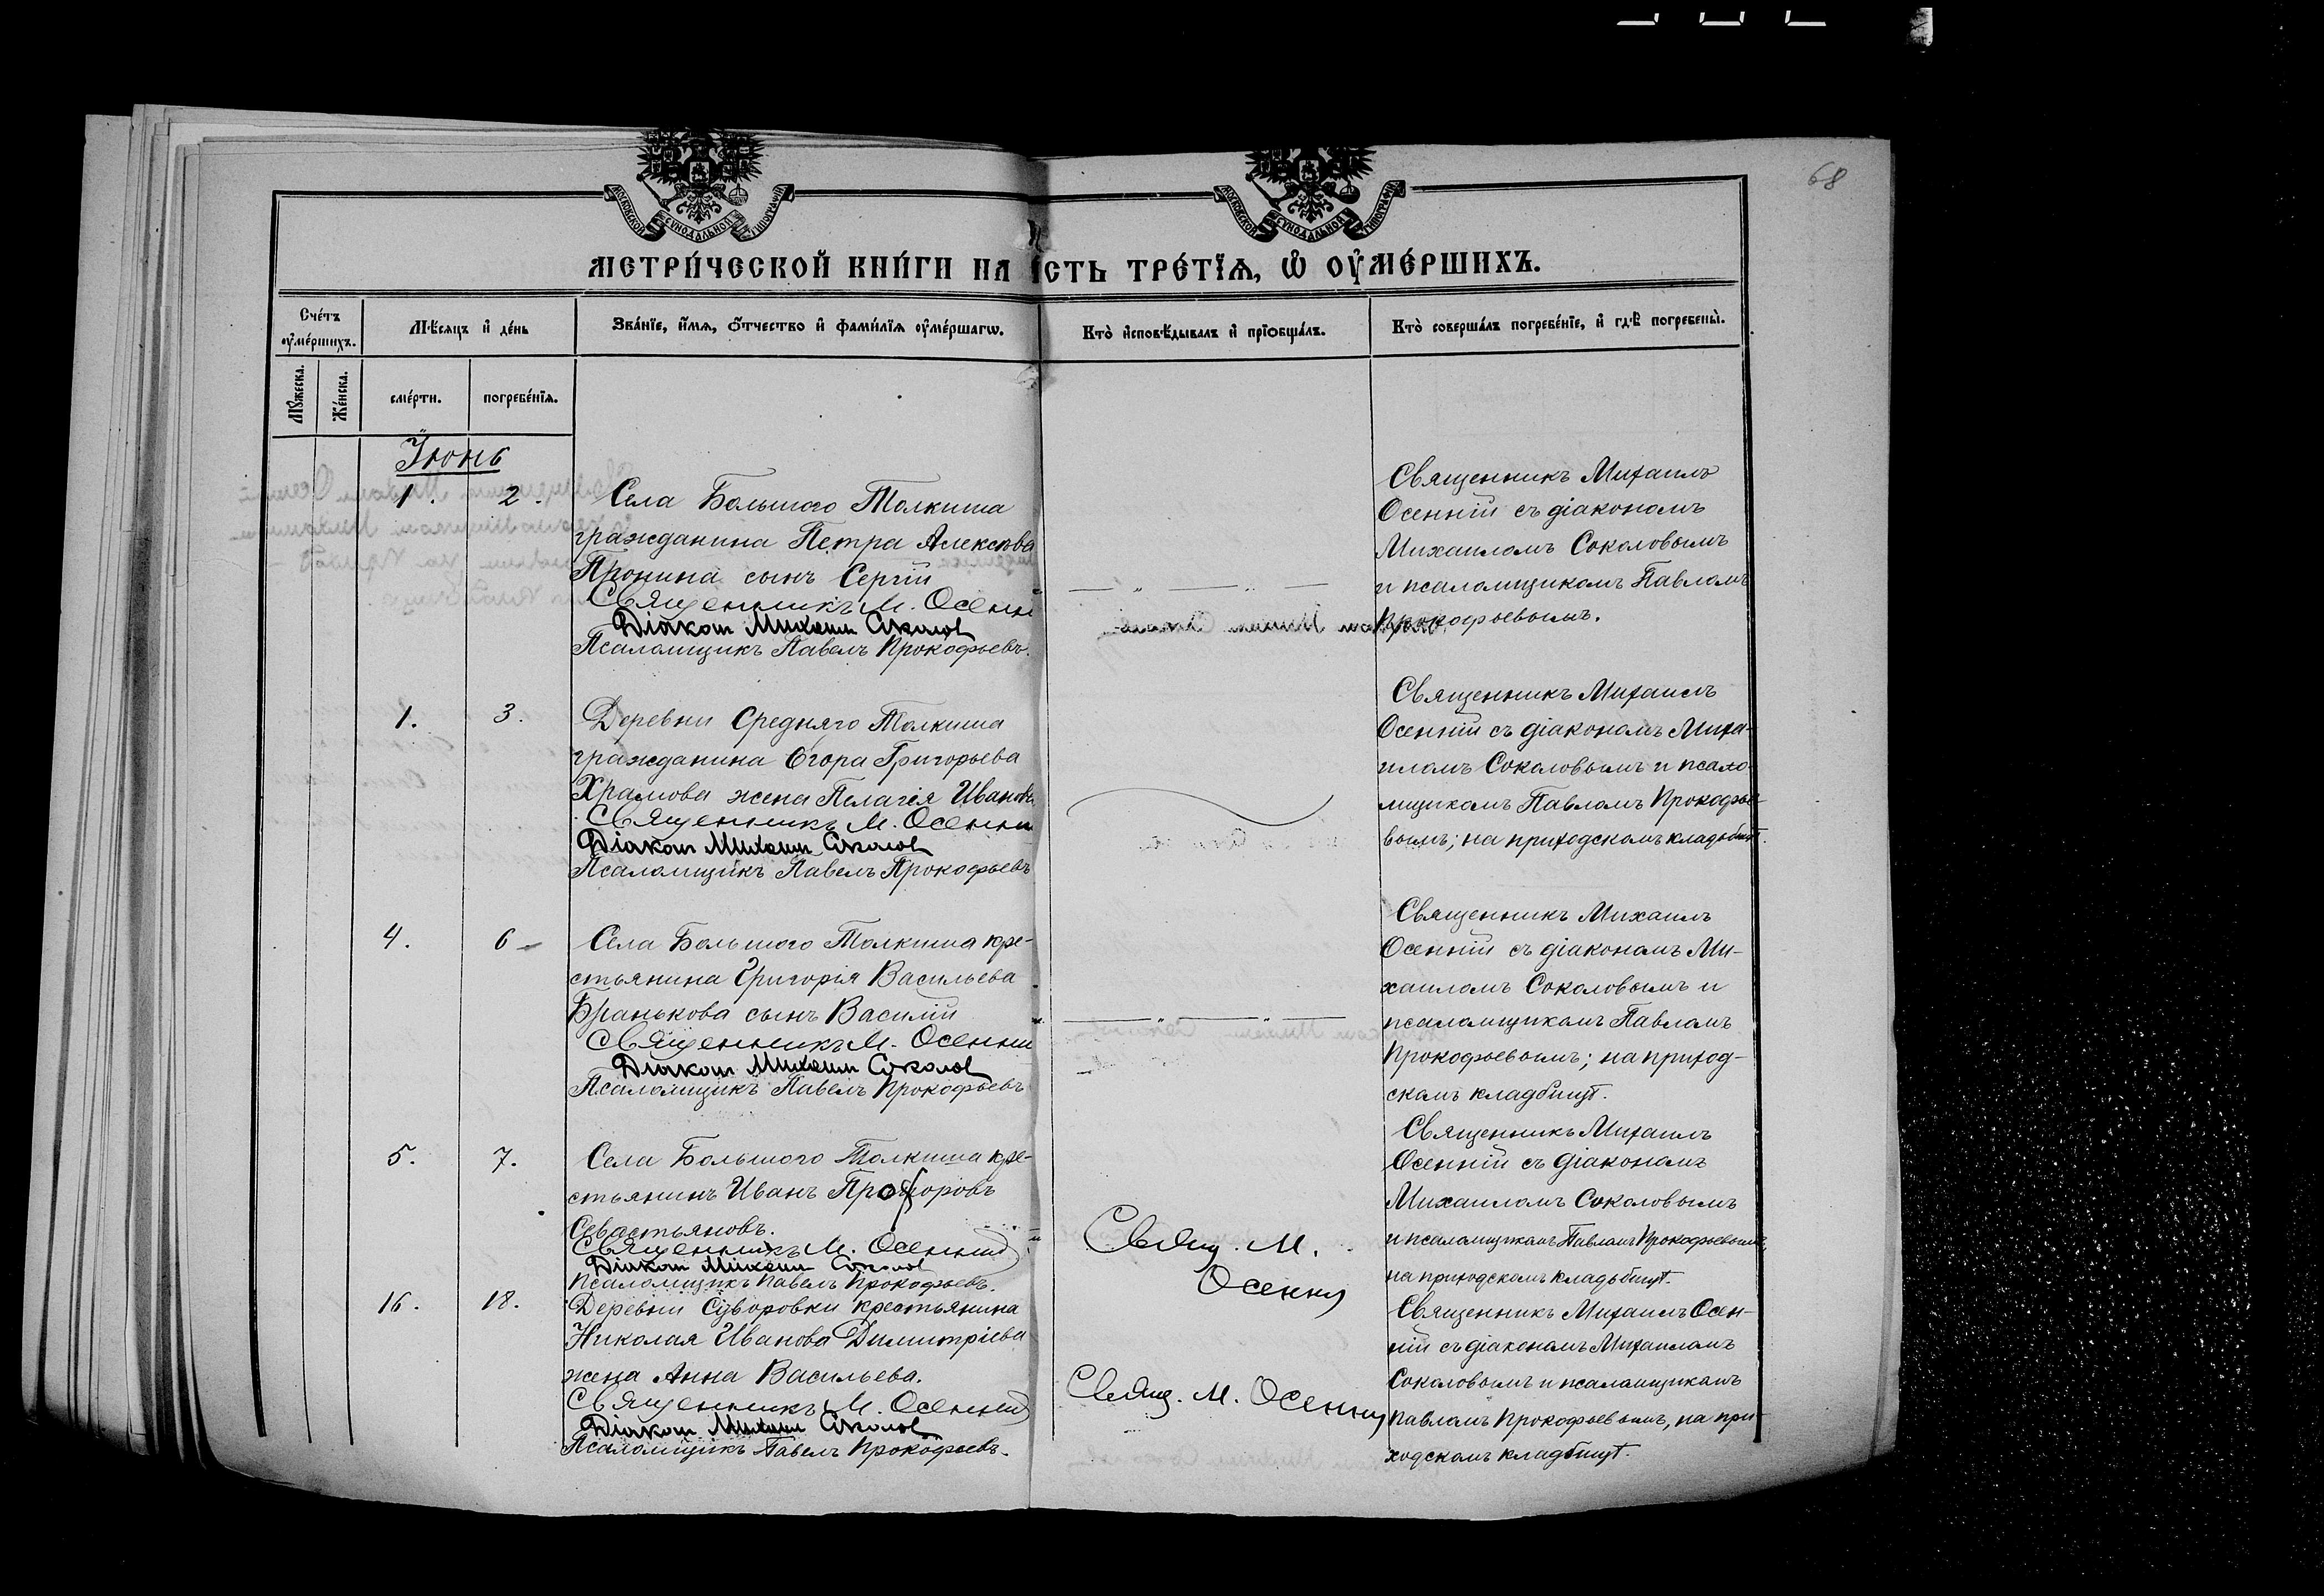 68
МОСКОВСКОЙ СѴНОДАЛЬНОЙ ТИПОГРАФІИ
МОСКОВСКОЙ СѴНОДАЛЬНОЙ ТИПОГРАФІИ
МЕТРИ́ЧЕСКОЙ КНИ́ГИ НА СТЬ ТРЕ́ТЇѦ, Ѽ ОУ҆МЕ́РШИХЪ.
Сче́тъ оу҆ме́ршихъ.
Мѣ́сѧцъ и҆ де́нь
Зва́нїе, и҆́мѧ, ѻ҆́тчество и҆ фами́лїѧ оу҆ме́ршагѡ.
Кто̀ и҆сповѣ́дывалъ и҆ прїѡбща́лъ.
Кто̀ соверша́лъ погребе́нїе, и҆ гдѣ̀ погребены̀.
Мꙋ́жеска.
Же́нска.
сме́рти.
погребе́нїѧ.
Іюнь
1.
2.
Села Большого Толкиша
гражданина Петра Алексѣева
Пронина сынъ Сергій
Священникъ М. Осенній
Діаконъ Михаилъ Соколовъ
Псаломщикъ Павелъ Прокофьевъ.
Священникъ Михаилъ
Осенній съ діакономъ
Михаиломъ Соколовымъ
и псаломщикомъ Павломъ
Прокофьевымъ.
1.
3.
Деревни Средняго Толкиша
гражданина Егора Григорьева
Храмова жена Пелагія Иванов.
Священникъ М. Осенній
Діаконъ Михаилъ Соколовъ
Псаломщикъ Павелъ Прокофьевъ
Священникъ Михаилъ
Осенній съ діакономъ Миха-
иломъ Соколовымъ и псало-
мщикомъ Павломъ Прокофье-
вымъ; на приходскомъ кладбищѣ.
4.
6
Села Большого Толкиша кре-
стьянина Григорія Васильева
Бранькова сынъ Василій
Священникъ М. Осенній
Діаконъ Михаилъ Соколовъ
Псаломщикъ Павелъ Прокофьевъ
Священникъ Михаилъ
Осенній съ діакономъ Ми-
хаиломъ Соколовымъ и
псаломщикомъ Павломъ
Прокофьевымъ; на приход-
скомъ кладбищѣ.
5.
7.
Села Большого Толкиша кре-
стьянинъ Иванъ Прохоровъ
Севастьяновъ.
Священникъ М. Осенній
Діаконъ Михаилъ Соколовъ
Псаломщикъ Павелъ Прокофьевъ.
Свящ. М.
Осенній
Священникъ Михаилъ
Осенній съ діакономъ
Михаиломъ Соколовымъ
и псаломщикомъ Павломъ Прокофьевымъ,
на приходскомъ кладьбищѣ.
16.
18.
Деревни Суворовки крестьянина
Николая Иванова Димитріева
жена Анна Васильева.
Священникъ М. Осенній
Діаконъ Михаилъ Соколовъ
Псаломщикъ Павелъ Прокофьевъ.
Свящ. М. Осенній
Священникъ Михаилъ Осен-
ній съ діакономъ Михаиломъ
Соколовымъ и псаломщикомъ
Павломъ Прокофьевымъ, на при-
ходскомъ кладбищѣ.